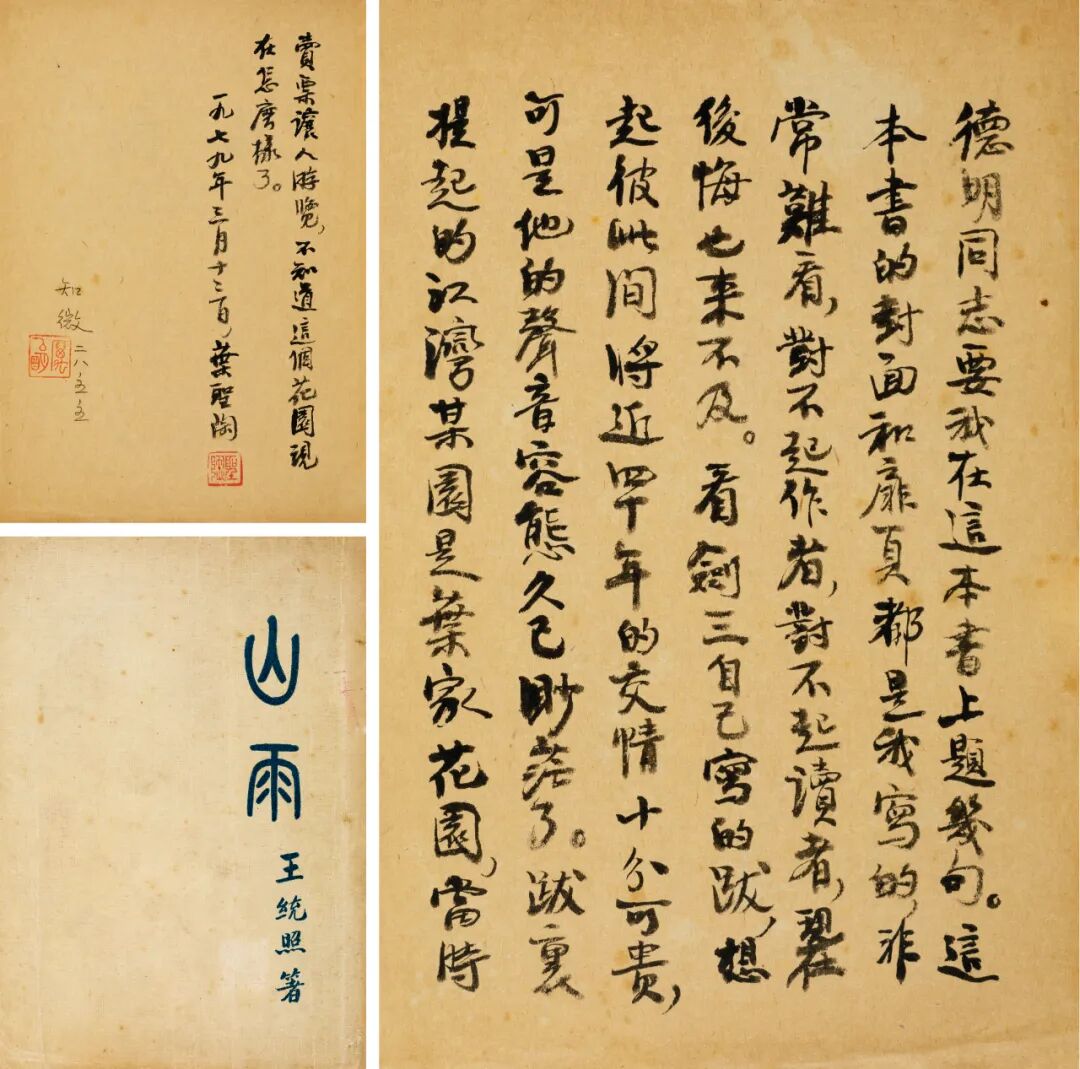 德明同志要我在這本書上題幾句。這
本書的封面和扉頁都是我寫的,非
常難看,對不起作者,對不起讀者,現在
後悔也來不及。看劍三自己寫的跋,想
起彼此間將近四十年的交情十分可貴,
可是他的聲音容態久已眇茫了。跋裏
提起的江灣某園是葉家花園,當時
賣票讓人游覽,不知道這個花園現
在怎麽樣了。
一九七九年三月十二日,葉聖陶
聖陶
知微
二八、五、五
山雨
王統照著